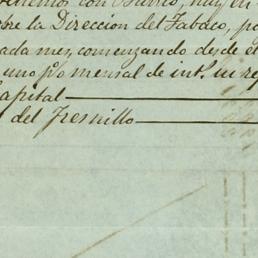 con
bre la Direccion del Tabaco, po
ada mes, comenzando desde el
uno p%o mensal de int.s in rep
Capital
del Fresnillo